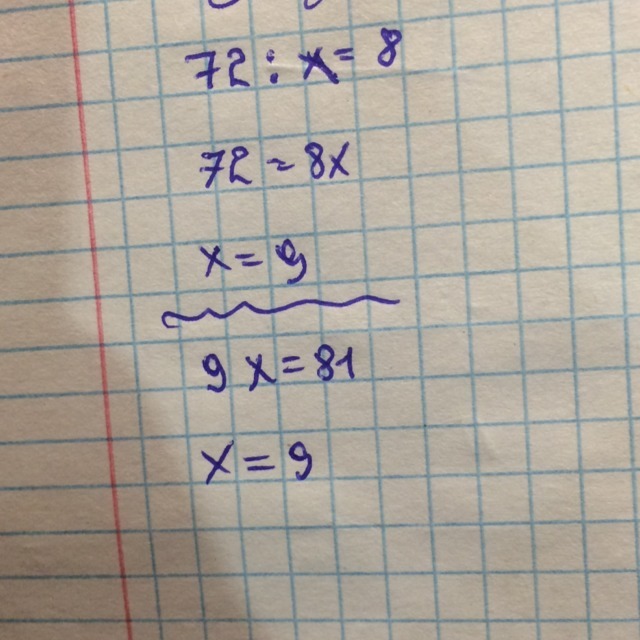 72 : x = 8
72 = 8x
x = 9
9x = 81
x = 9